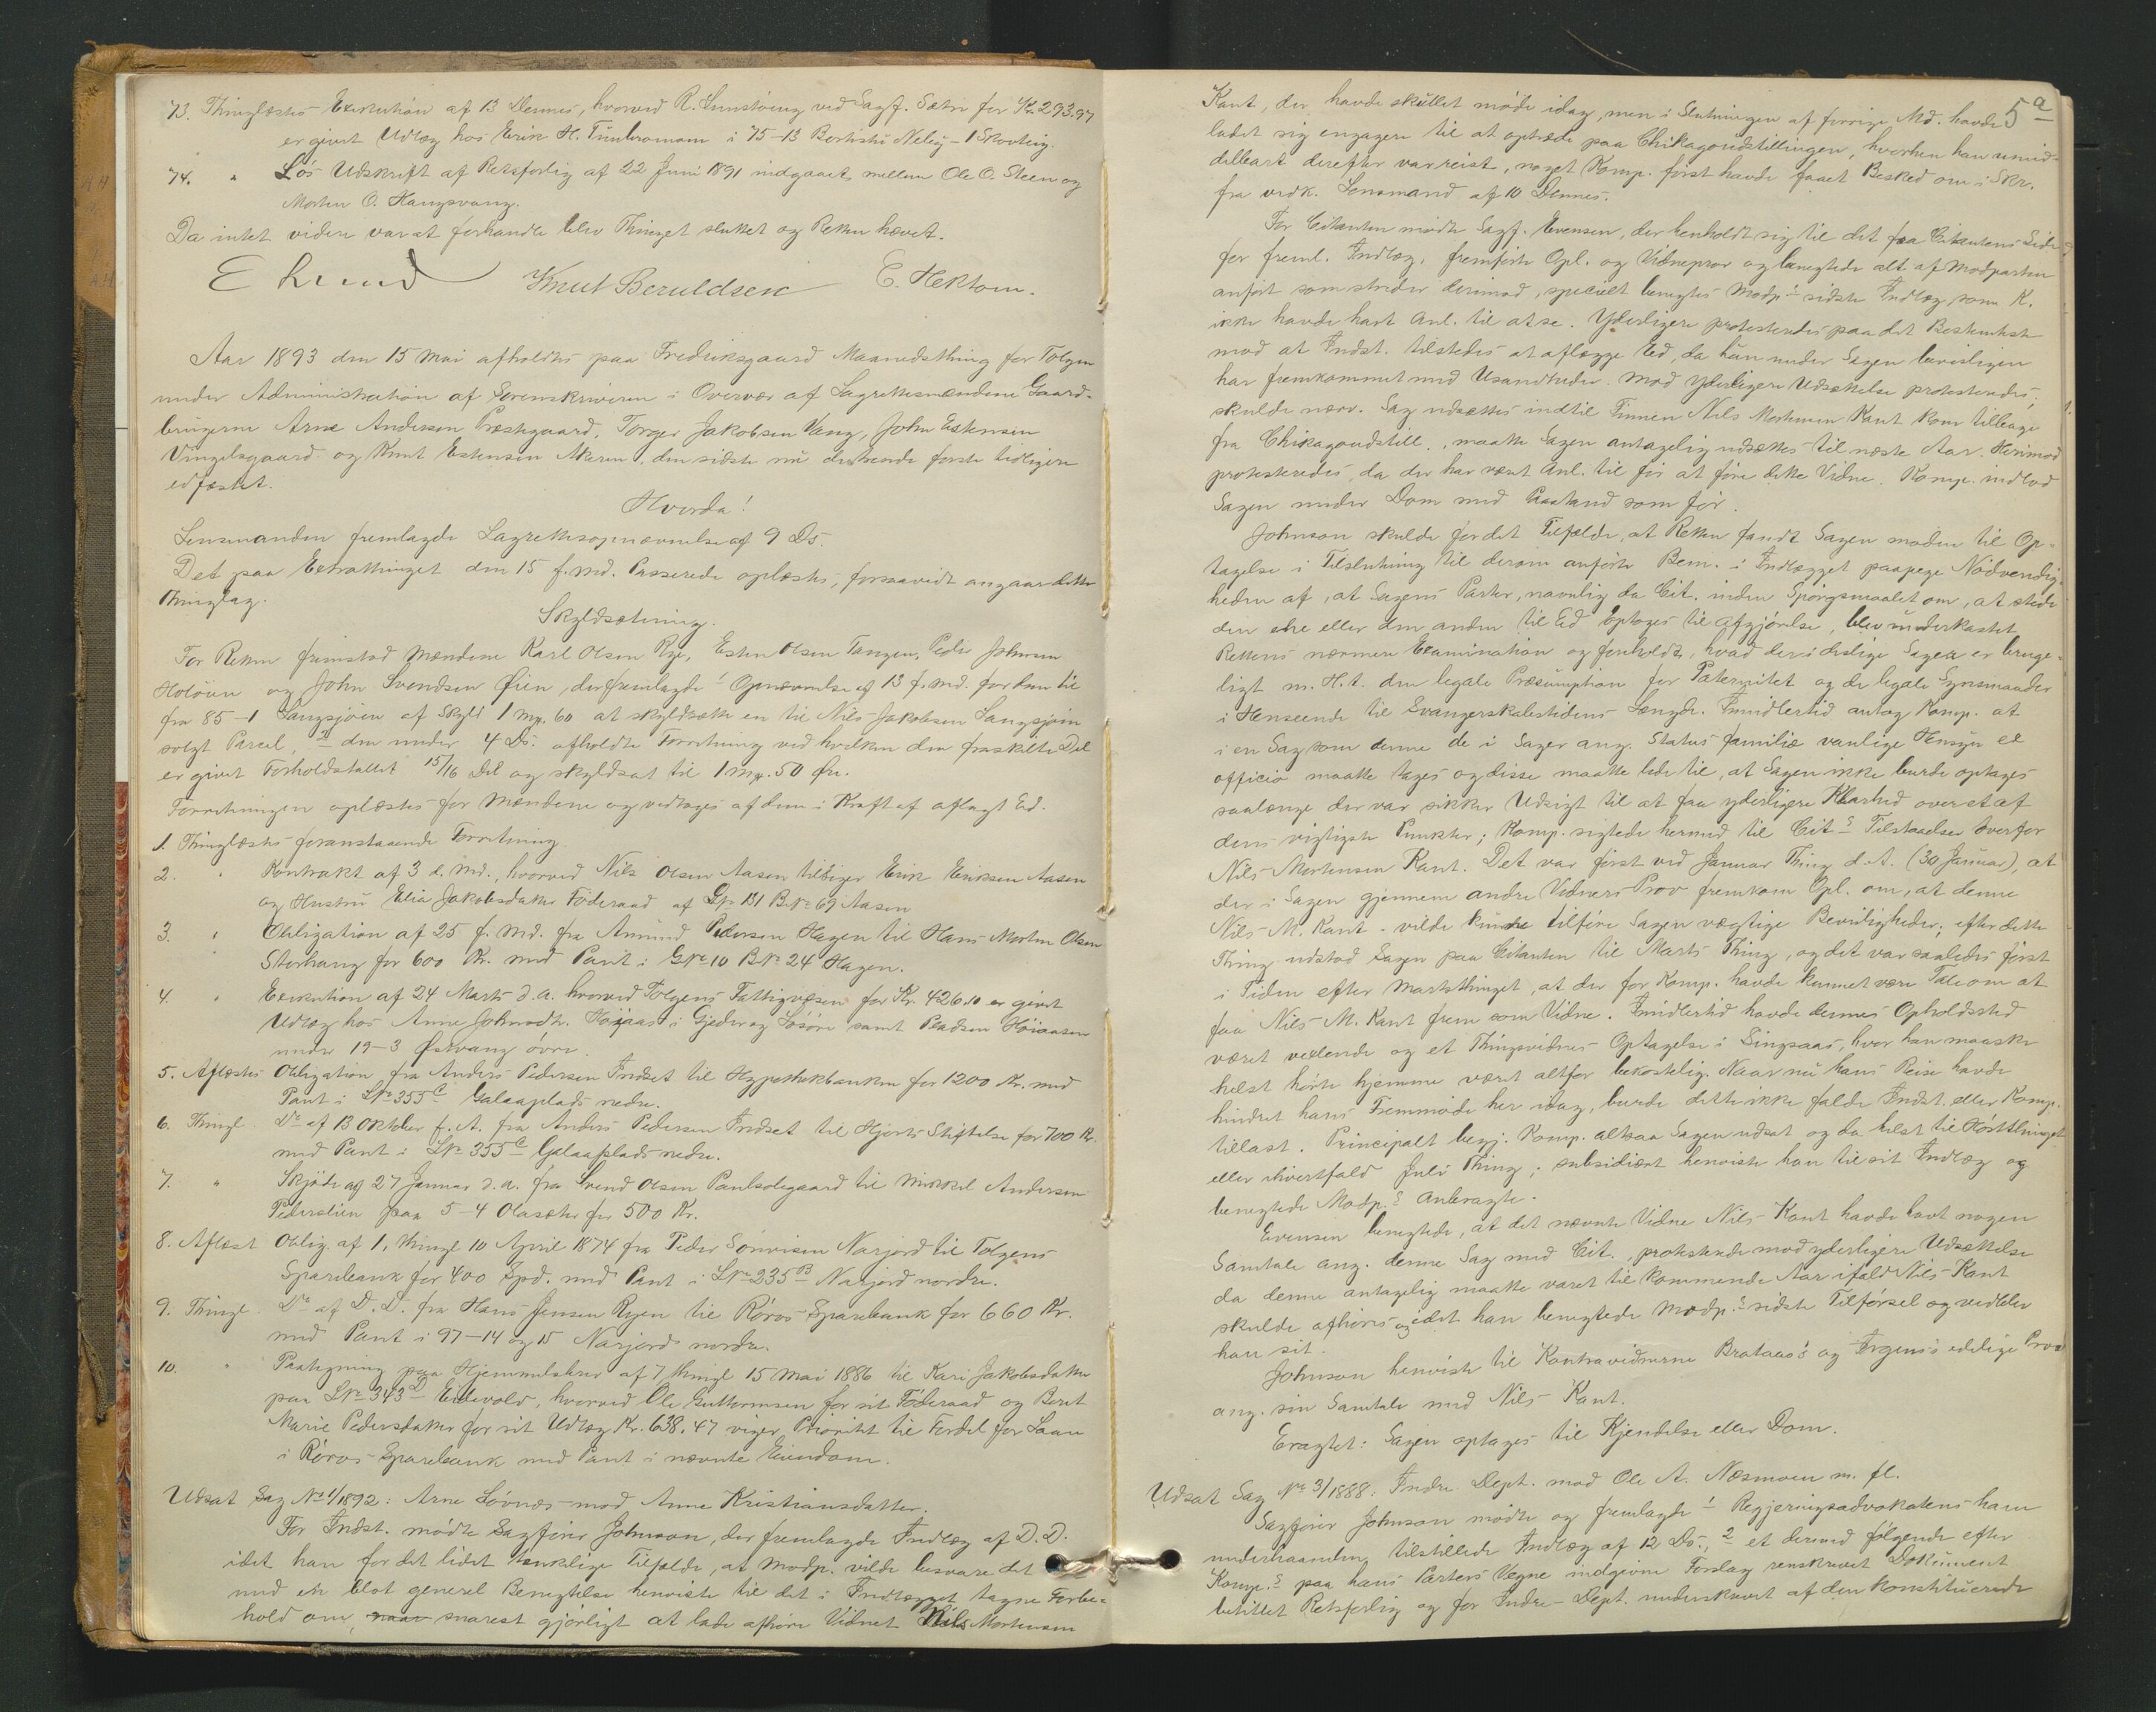 73. Thinglæstes Exekution af 13 Dennes, hvorved R. Lunstøeng ved Sagf. Sæter for Kr. 293.97
er givet Udlæg hos Erik H. Tümbromam i 75-13 Bortistü Neliÿ - 1 Skovteig.
74. " Løs Udskrift af Retsforlig af 22 Juni 1891 indgaaet mellem Ole O. Steen og
Morten O. Haugsvang.
Da intet videre var at forhandle blev Thinget sluttet og Retten hævet.
E Lund Knut Beruldsen E. Hektoen.
Aar 1893 den 15 Mai afholdtes paa Fredriksgaard Maanedsthing for Tolgen
under Administration af Sorenskriveren i Overvær af Lagrettesmændene Gaard-
brugerne Arne Andersen Præstgaard, Torger Jakobsen Vang, John Estensen
Vingelsgaard og Knut Estensen Akeren, den sidste nu de trende første tidligere
edfæstet.
Hvorda!
Lensmanden fremlagde Lagrettesopnævnelse af 9 Ds.
Det paa Extrathinget den 15 f. Md. Passerede oplæstes, forsaavidt angaar dette
Thinglag.
Skyldsætning.
For Retten fremstod Mændene Karl Olsen Rye, Esten Olsen Tangen, Peder Johnsen
Holøien og John Svendsen Øien, der fremlagde 1 Opnævnelse af 13 f. Md. for dem til
fra 85-1 Langsjøen af Skyld 1 Mrk. 60 at skyldsætte en til Nils Jakobsen Langsjøen
solgt Parcel, 2 den under 4 Ds. afholdte Forretning ved hvilken den fraskilte Del
er givet Forholdstallet 15/16 Del og skyldsat til 1 Mrk. 50 Øre.
Forretningen oplæstes for Mændene og vedtoges af dem i Kraft af aflagt Ed.
1. Thinglæstes foranstaaende Forretning.
2. " Kontrakt af 3 d. Md., hvorved Nils Olsen Aasen tilsiger Erik Eriksen Aasen
og Hustru Elia Jakobsdatter Føderaad af Gr 131 B.No 69 Aasen
3. " Obligation af 25 f. Md. fra Amund Pedersen Hagen til Hans Morten Olsen
Storhaug for 600 Kr. med Pant i GNo 10 BNo 24 Hagen.
4. " Exekution af 24 Marts d. A. hvorved Tolgens Fattigvæsen for Kr. 426.10 er givet
Udlæg hos Anne Johnsdtr. Høiaas i Gjeder og Løsøre samt Pladsen Høiaasen
under 19-3 Østvang øvre.
5. Aflæstes Obligation fra Anders Pedersen Indset til Hypothekbanken for 1200 Kr. med
Pant i LNo 355c Galaaplads nedre.
6. Thingl. Do af 13 Oktober f. A. fra Anders Pedersen Indset til Hjorts Stiftelse for 700 Kr.
med Pant i LNo 355c Galaaplads nedre.
7. " Skjøde af 27 Januar d. A. fra Svend Olsen Paulsolegaard til Mikkel Andersen
Pederslien paa 5-4 Olasæter for 500 Kr.
8. Aflæst Oblig. af 1, thingl 10 April 1874 fra Peder Sørvisen Narjord til Tolgens
Sparebank for 400 Spd. med Pant i LNo 235B Narjord nordre.
9. Thingl. Do af D. D. fra Hans Jensen Ryen til Røros Sparebank for 660 Kr.
med Pant i 97-14 og 15 Narjord nordre.
10. " Paategning paa Hjemmelsbrev af 7, thingl 15 Mai 1886 til Kari Jakobsdatter
paa LNo 343D Eidevold, hvorved Ole Guttormsen for sit Føderaad og Berit
Marie Pedersdatter for sit Udlæg Kr. 638.47 viger Prioritet til Fordel for Laan
i Røros Sparebank med Pant i nævnte Eiendom.
Udsat Sag No 1/1892: Arne Løvnæs mod Anne Kristiansdatter.
For Indst. mødte Sagfører Johnson, der fremlagde Indlæg af D. D.
idet han for det lidet tænkelige Tilfælde, at Modp. vilde besvare det
med en blot generel Benegtelse henviste til det i Indlægget tagne Forbe-
hold om, naar snarest gjørligt at lade afhøre Vidnet Nils Mortensen
5a
Kant, der havde skullet møde idag, men i Slutningen af forrige Md. havde
ladet sig engagere til at optræde paa Chikagoudstillingen, hvorhen han umid-
delbart derefter var reist, noget Komp. først havde faaet Besked om i Skr.
fra vedk. Lensmand af 10 Dennes.
For Citanten mødte Sagf. Evensen, der henholdt sig til det fra Citantens Side
før freml. Indlæg, fremførte Opl. og Vidneprov og benegtede alt af Modparten
anført som strider derimod, specielt benegtes Modp.s sidste Indlæg som K.
ikke havde havt Anl. til at se. Yderligere protesteredes paa det Bestemteste
mod at Indst. tilstedes at aflægge Ed, da han under Sagen bevisligen
har fremkommet med Usandheder. Mod yderligere Udsættelse protesteredes;
skulde nærv. Sag udsættes indtil Finnen Nils Mortensen Kant kom tilbage
fra Chikagoudstill., maatte Sagen antagelig udsættes til næste Aar. Herimod
protesteredes, da der har været Anl. til før at føre dette Vidne. Komp. indlod
Sagen under Dom med Paastand som før.
Johnson skulde for det Tilfælde, at Retten fandt Sagen moden til Op-
tagelse i Tilslutning til derom anførte Bem. i Indlægget paapege Nødvendig-
heden af, at Sagens Parter, navnlig da Cit. inden Spørgsmaalet om, at stede
den ene eller den anden til Ed optages til Afgjørelse, blev underkastet
Rettens nærmere Examination og foreholdt, hvad der i deslige Sager er bruge-
ligt m. H. t. den legale Præsumption for Paternitet og de legale Synsmaader
i Henseende til Svangerskabstidens Længde. Imidlertid antog Komp. at
i en Sag som denne de i Sager ang. Status familiæ vanlige Hensyn ex
officio maatte tages og disse maatte lede til, at Sagen ikke burde optages
saalænge der var sikker Udsigt til at faa yderligere Klarhed over et af
dens vigtigste Punkter; Komp. sigtede hermed til Cit.s Tilstaaelser overfor
Nils Mortensen Kant. Det var først ved Januar Thing d. A. (30 Januar), at
der i Sagen gjennem andre Vidners Prov fremkom Opl. om, at denne
Nils M. Kant vilde kunde tilføre Sagen vægtige Bevisligheder; efter dette
Thing udstod Sagen paa Citanten til Marts Thing, og det var saaledes først
i Tiden efter Martsthinget, at der for Komp. havde kunnet være Tale om at
faa Nils M. Kant frem som Vidne. Imidlertid havde dennes Opholdssted
været vexlende og et Thingsvidnes Optagelse i Singsaas, hvor han maaske
helst hørte hjemme været altfor bekostelig. Naar nu hans Reise havde
hindret hans Fremmøde her idag, burde dette ikke falde Indst. eller Komp.
tillast. Principalt begj. Komp. altsaa Sagen udsat og da helst til Høstthinget
eller ihvertfald Juli Thing; subsidiært henviste han til sit Indlæg og
benegtede Modp.s Anbragte.
Evensen benegtede, at det nævnte Vidne Nils Kant havde havt nogen
Samtale ang. denne Sag med Cit., protesterede mod yderligere Udsættelse
da denne antagelig maatte varet til kommende Aar ifald Nils Kant
skulde afhøres og idet han benegtede Modp.s sidste Tilførsel og vedblev
han sit.
Johnson henviste til Kontravidnerne Brataas's og Irgens's edelige Prov
ang. sin Samtale med Nils Kant.
Eragtet: Sagen optages til Kjendelse eller Dom.
Udsat Sag No 3/1888. Indre Dept. mod Ole A. Næsmoen m. fl.
Sagfører Johnson mødte og fremlagde 1 Regjeringsadvokatens ham
underhaanden tilstillede Indlæg af 12 Ds., 2 et dermed følgende efter
Komp.s paa hans Parters Vegne indgivne Forslag renskrevet Dokument
betitlet Retsforlig og for Indre Dept. underskrevet af den konstituerede